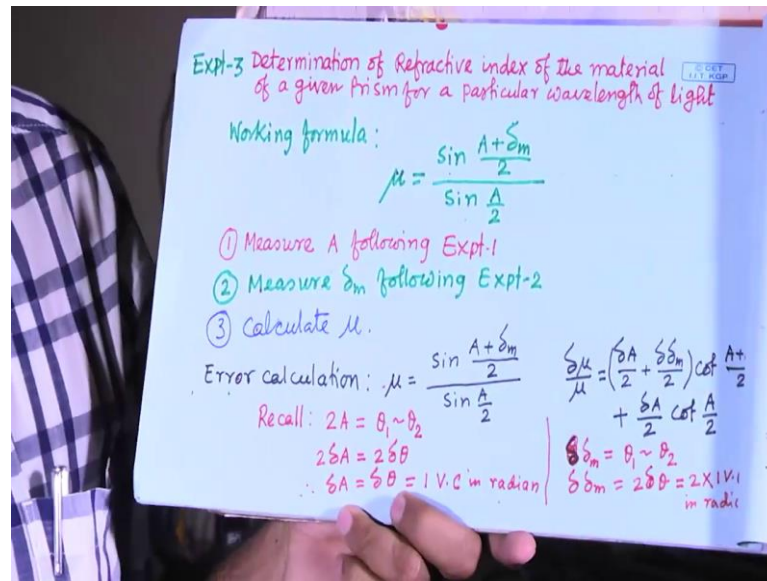 Expt-3 Determination of Refractive index of the material
of a given Prism for a particular wavelength of light
© CET
I.I.T. KGP
Working formula:
μ = sin (A+δm)/2 / sin A/2
① Measure A following Expt-1
② Measure δm following Expt-2
③ Calculate μ.
Error calculation: μ = sin (A+δm)/2 / sin A/2
Recall: 2A = θ₁~θ₂
2δA = 2δθ
∴ δA = δθ = 1 V.C in radian
δμ/μ = (δA/2 + δδm/2) cot A+/2
+ δA/2 cot A/2
δm = θ₁~θ₂
δδm = 2δθ = 2×1 V.
in radi